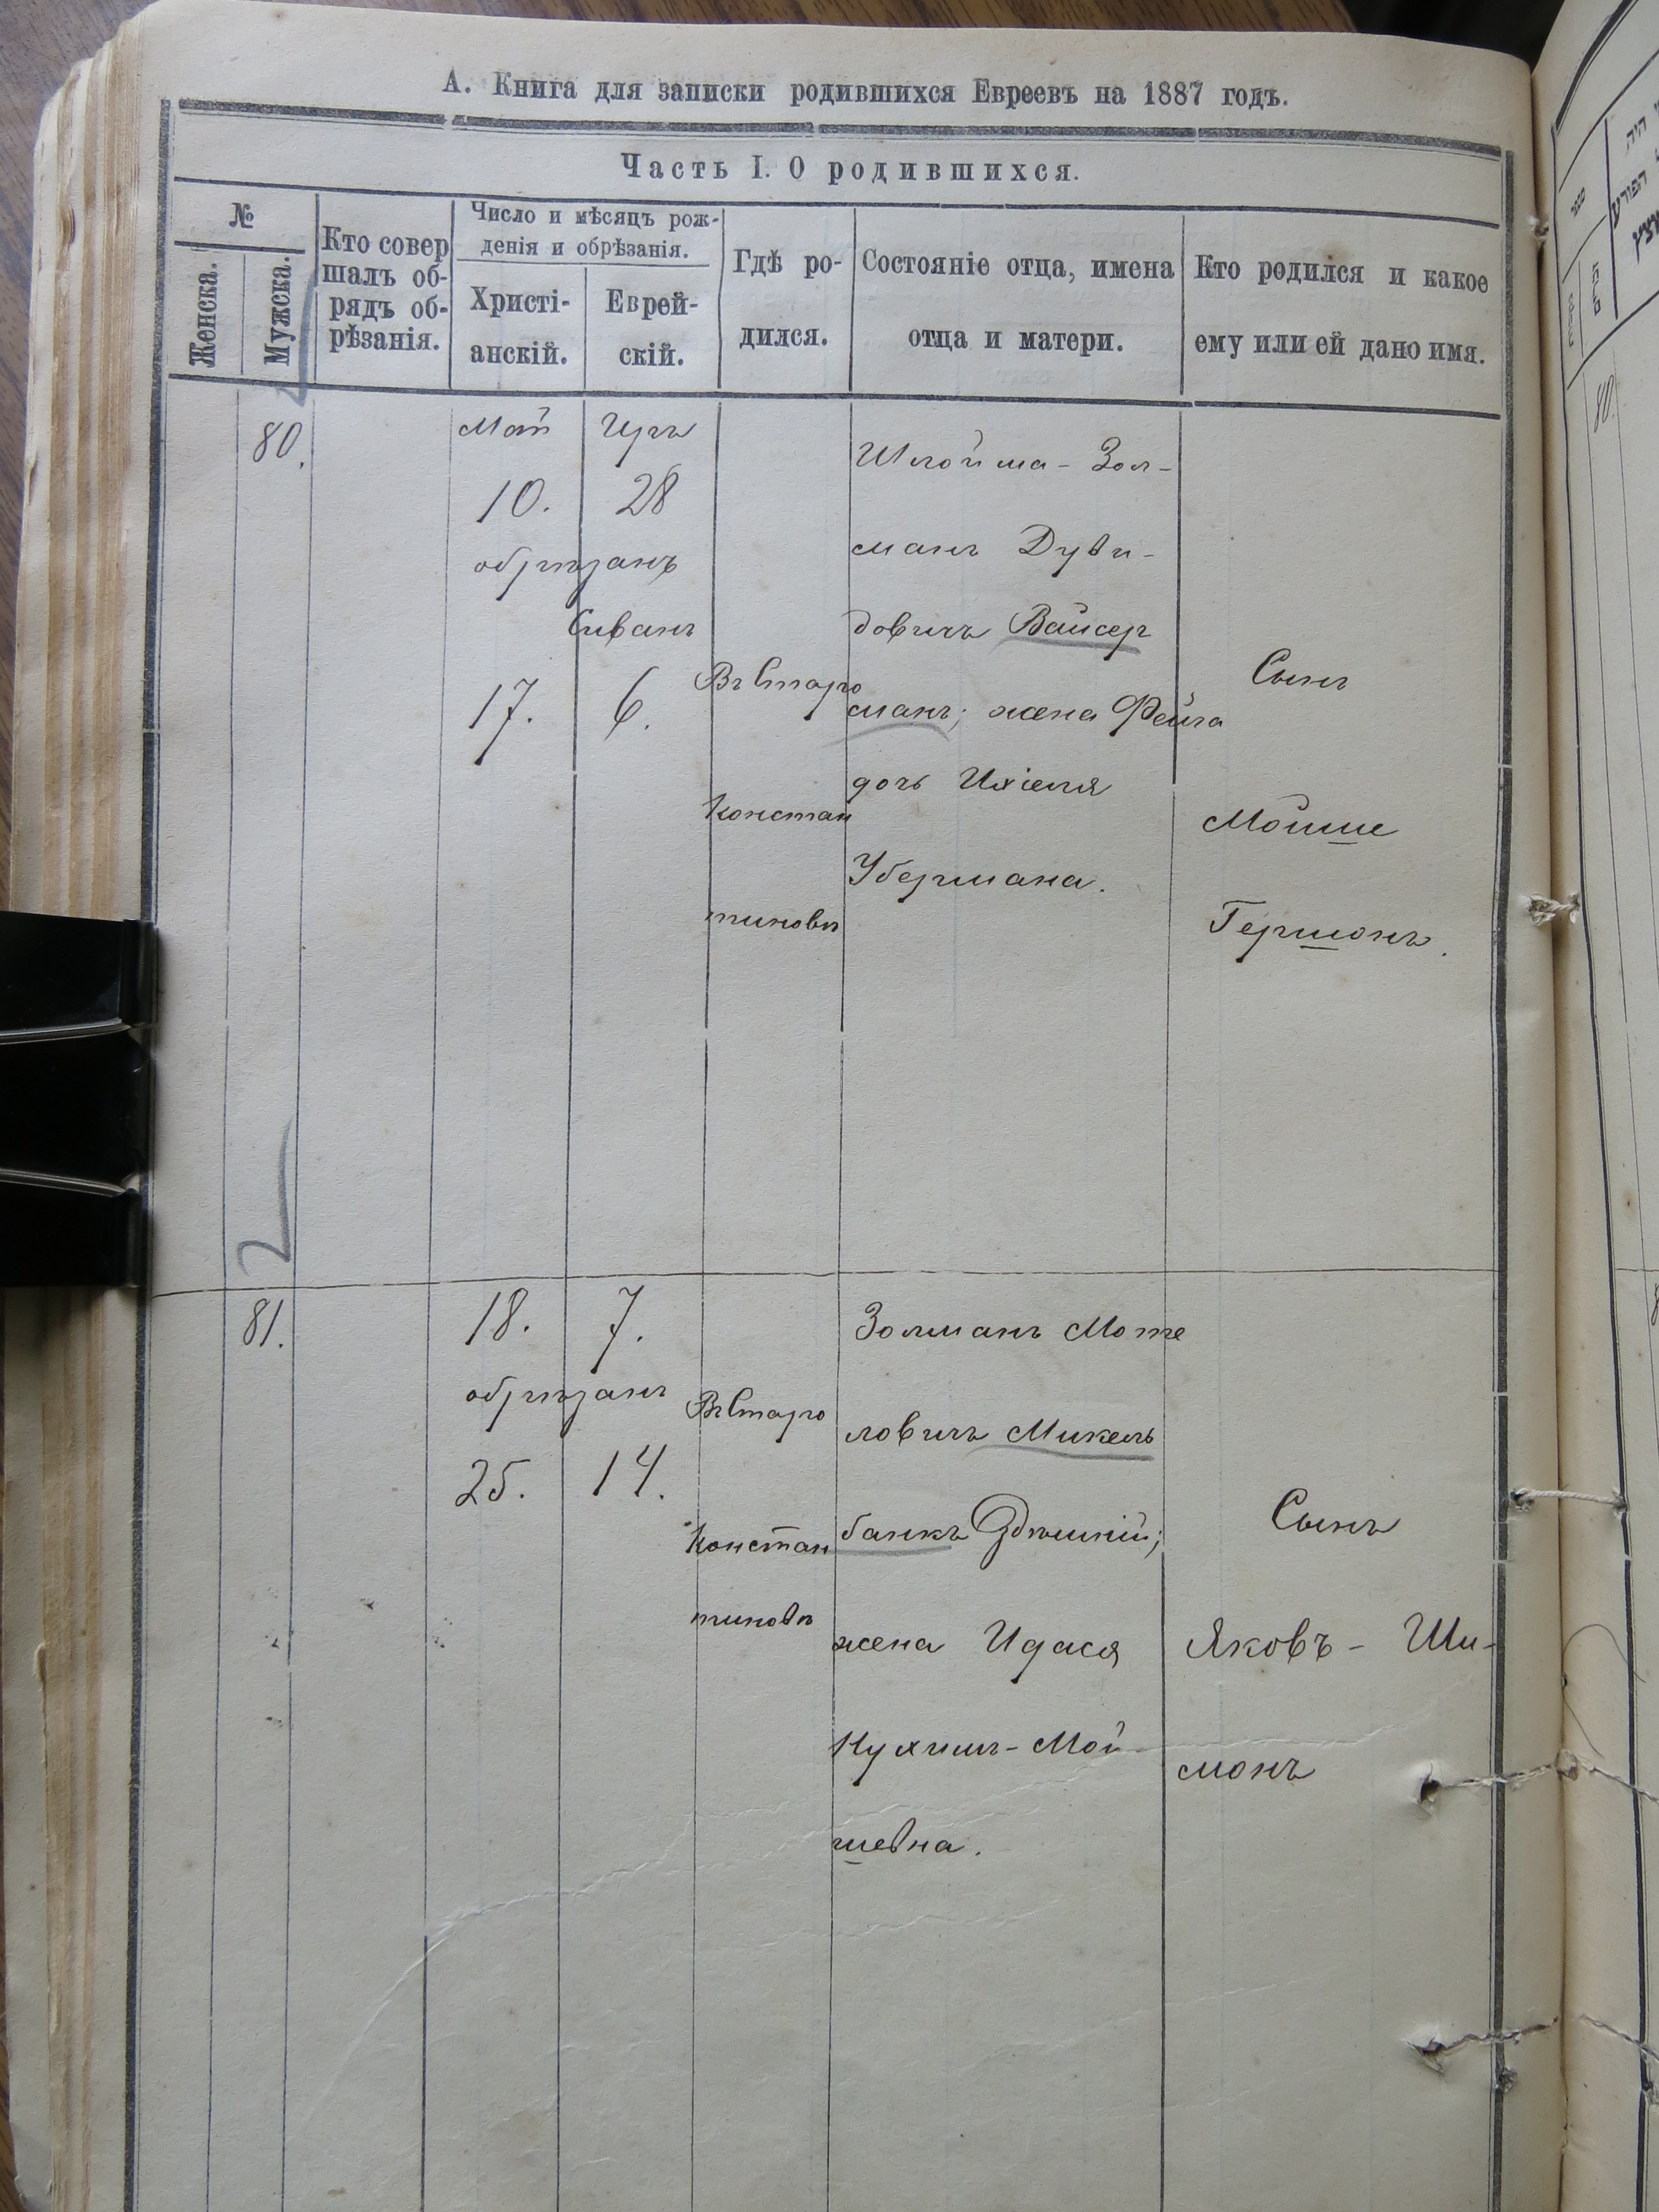 А. Книга для записки родившихся Евреевъ на 1887 годъ.
Часть I. О родившихся.
№
Женска.
Мужска.
Кто совер
шалъ об-
рядъ об-
рѣзанія.
Число и мѣсяцъ рож-
денія и обрѣзанія.
Христі-
анскій.
Еврей-
скій.
Гдѣ ро-
дился.
Состояніе отца, имена
отца и матери.
Кто родился и какое
ему или ей дано имя.
80.
Май
10.
Иръ
28
обрѣзанъ
Сиванъ
17.
6.
Въ Старо
Констан
тиновѣ
Шлойма-Зол-
манъ Дуви-
довичъ Вайсер
манъ; жена Фейга
дочь Ихіеля
Убермана.
Сынъ
Мойше
Гершонъ.
81.
18.
7.
обрѣзанъ
25.
14.
Въ Старо
Констан
тиновѣ
Золманъ Моте
ловичъ Микель
банкъ Здѣшній;
жена Идася
Нухимъ-Мой
шевна.
Сынъ
Яковъ-Ши-
монъ
80.